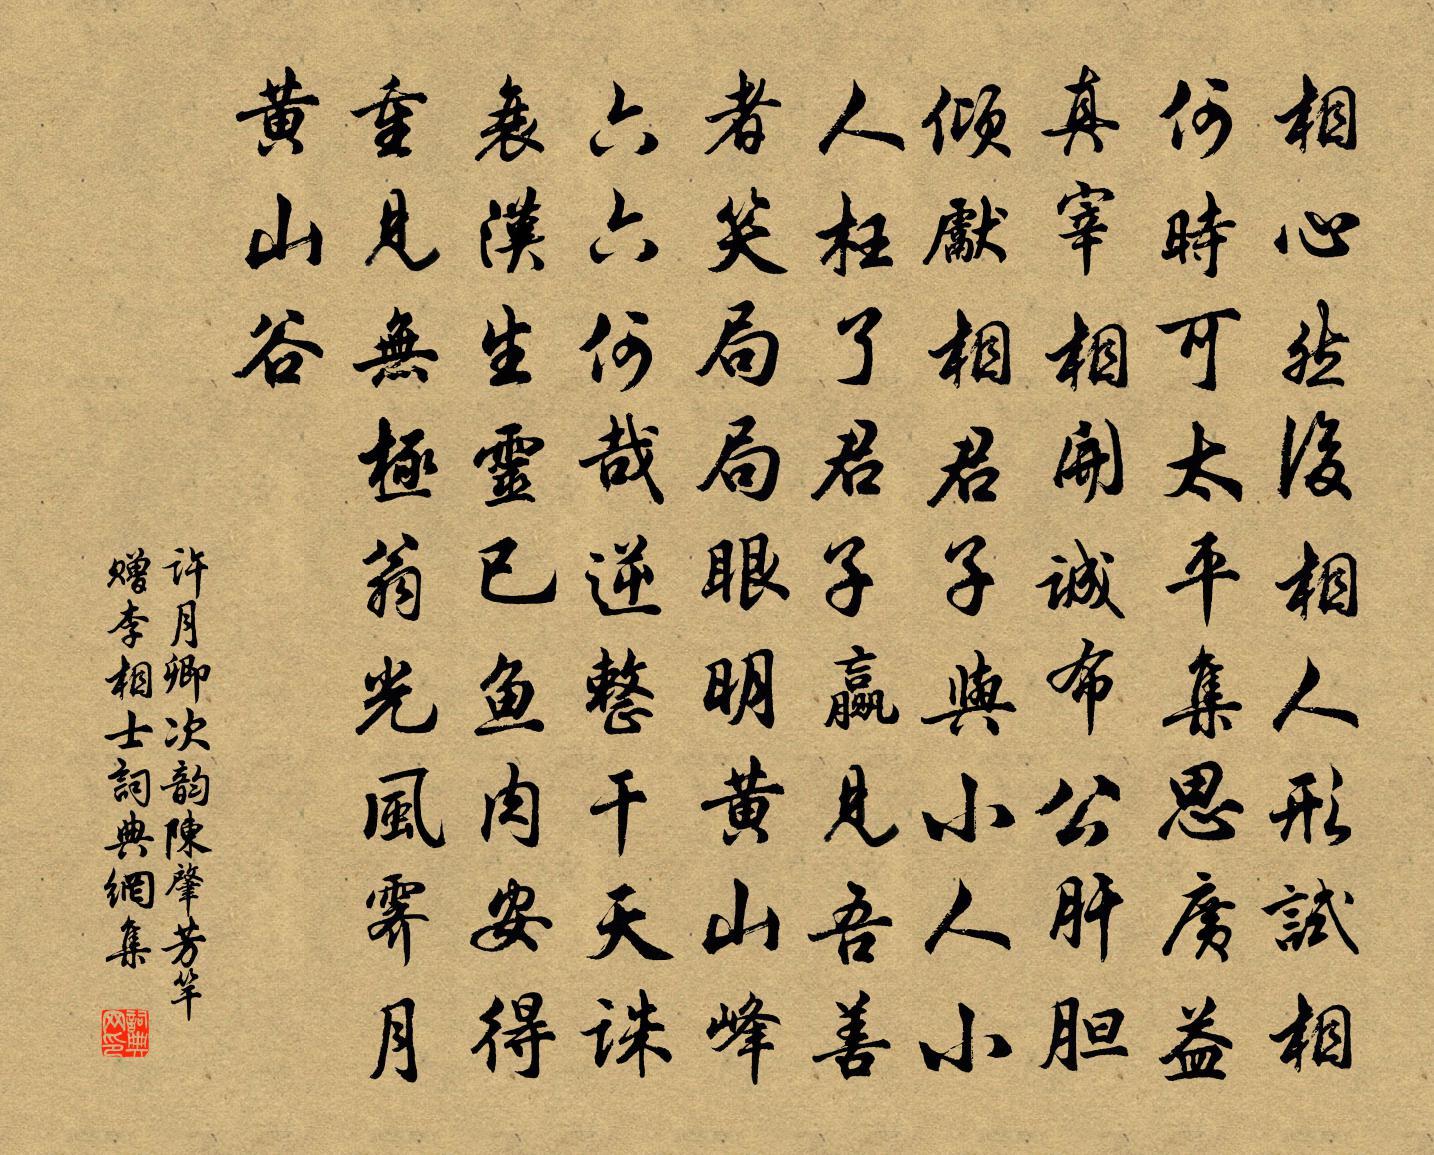 相心然後相人形試相
何時可太平集思廣益
真宰相開誠布公肝胆
傾獻相君子與小人小
人枉了君子贏見吾善
者笑局局眼明黄山峰
六六何哉逆整干天誅
衰漢生靈已鱼肉安得
重見無極翁光風霽月
黄山谷
许月卿次韵陳肇芳竿
赠李相士詞典網集
詞典网印